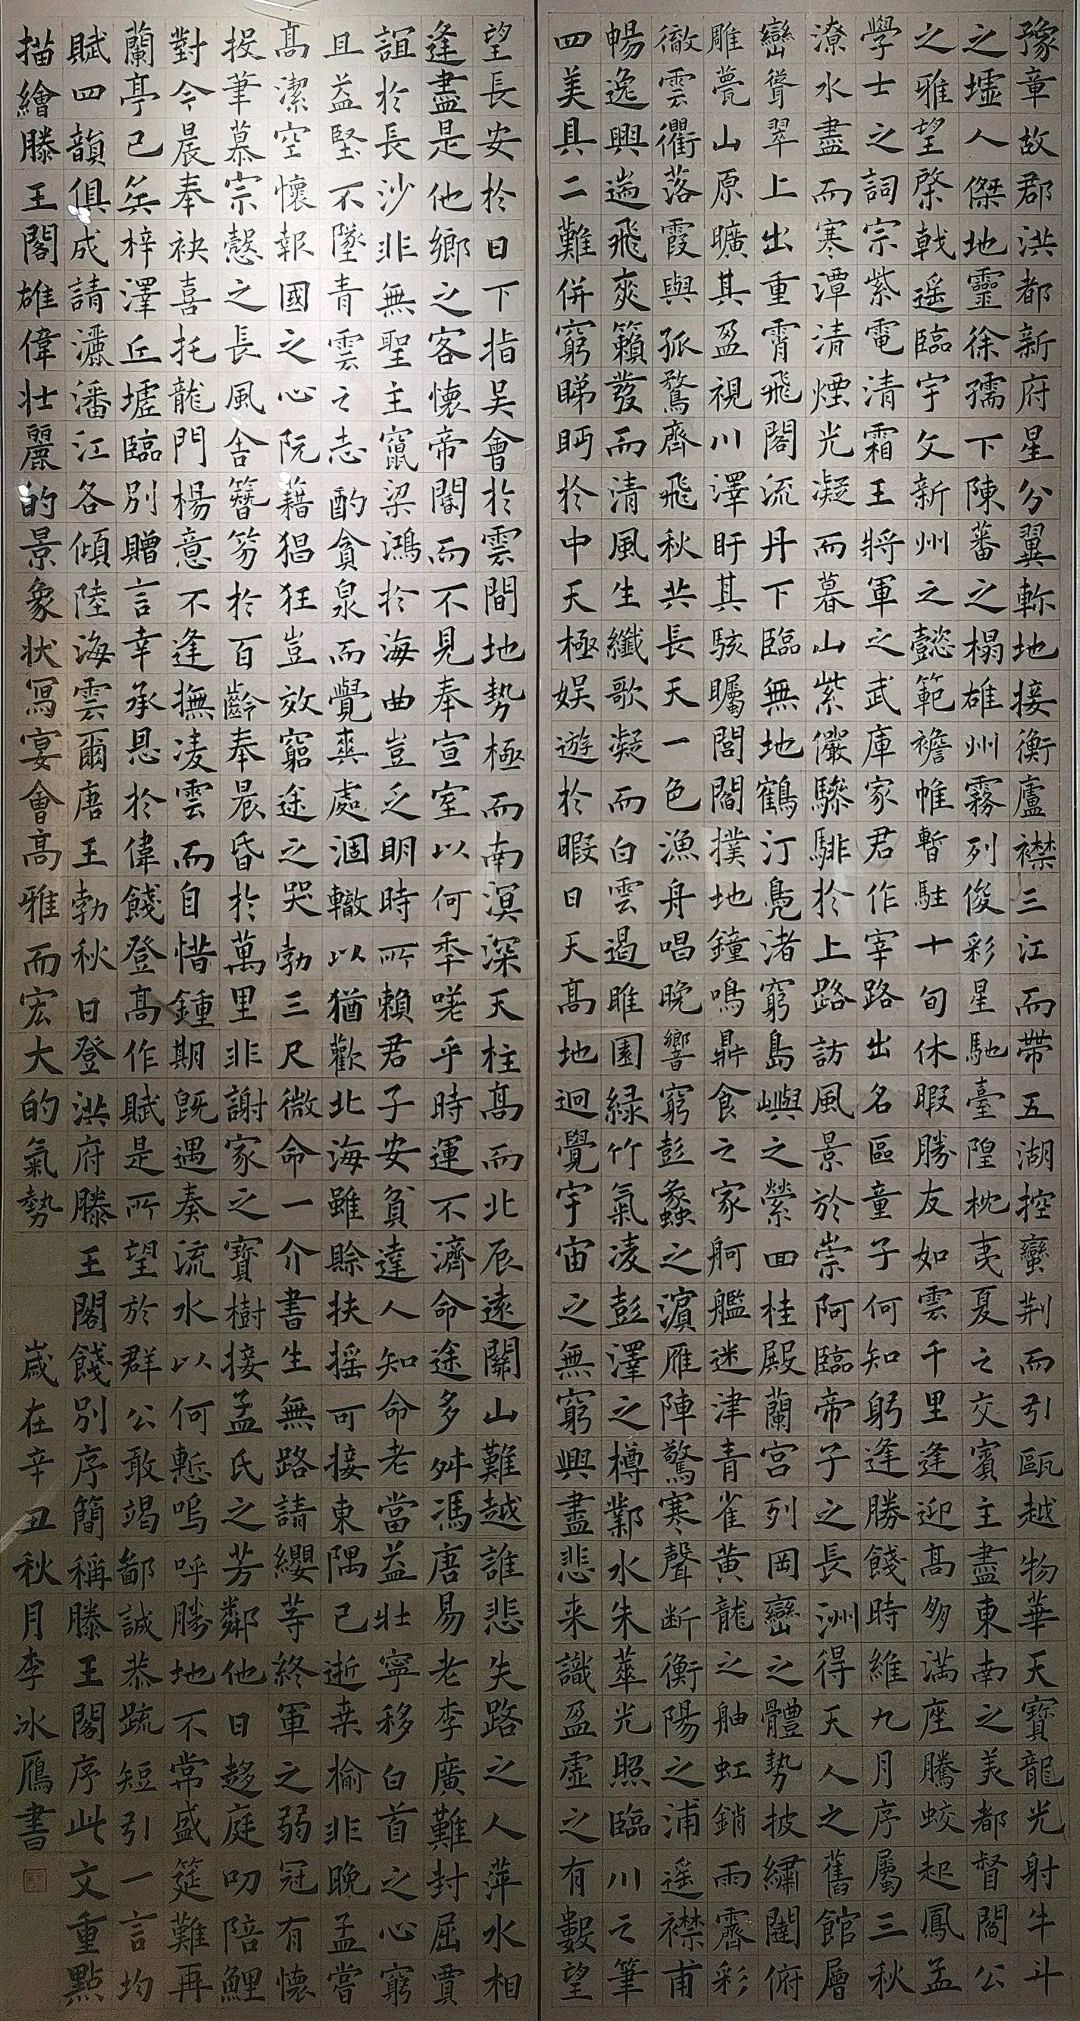 豫章故郡洪都新府星分翼軫地接衡廬襟三江而帶五湖控蠻荆而引甌越物華天寶龍光射牛斗
之墟人傑地靈徐孺下陳蕃之榻雄州霧列俊彩星馳臺隍枕夷夏之交賓主盡東南之美都督閻公
之雅望棨戟遥臨宇文新州之懿範襜帷暫駐十旬休暇勝友如雲千里逢迎髙朋满座騰蛟起鳳孟
學士之詞宗紫電清霜王將軍之武庫家君作宰路出名區童子何知躬逢勝餞時維九月序屬三秋
潦水盡而寒潭清煙光凝而暮山紫儼驂騑於上路訪風景於崇阿臨帝子之長洲得天人之舊館層
巒聳翠上出重霄飛閣流丹下臨無地鶴汀鳧渚窮島嶼之縈回桂殿蘭宫列岡巒之體勢披繡闥俯
雕甍山原曠其盈視川澤盱其駭矚閭閻撲地鐘鳴鼎食之家舸艦迷津青雀黄龍之舳虹銷雨霽彩
徹雲衢落霞與孤鶩齊飛秋共長天一色漁舟唱晚響窮彭蠡之濱雁陣驚寒聲断衡陽之浦遥襟甫
暢逸興遄飛爽籟發而清風生纖歌凝而白雲遏睢園緑竹氣凌彭澤之樽鄴水朱華光照臨川之筆
四美具二難併窮睇眄於中天極娱遊於暇日天髙地迥覺宇宙之無窮興盡悲来識盈虚之有數望
望長安於日下指吴會於雲間地勢極而南溟深天柱髙而北辰遠關山難越誰悲失路之人萍水相
逢盡是他鄉之客懷帝閽而不見奉宣室以何年嗟乎時運不濟命途多舛馮唐易老李廣難封屈賈
誼於長沙非無聖主竄梁鴻於海曲豈乏明時所賴君子安貧達人知命老當益壯寧移白首之心窮
且益堅不墜青雲之志酌貪泉而覺爽處涸轍以猶歡北海雖賒扶摇可接東隅已逝桑榆非晚孟嘗
髙潔空懷報國之心阮籍猖狂豈效窮途之哭勃三尺微命一介書生無路請纓等終軍之弱冠有懷
投筆慕宗慤之長風舍簪笏於百齡奉晨昏於萬里非謝家之寶樹接孟氏之芳鄰他日趨庭叨陪鯉
對今晨奉袂喜托龍門楊意不逢撫凌雲而自惜鍾期既遇奏流水以何慙嗚呼勝地不常盛筵難再
蘭亭已矣梓澤丘墟臨別贈言幸承恩於偉餞登髙作賦是所望於群公敢竭鄙誠恭疏短引一言均
賦四韻俱成請灑潘江各傾陸海雲爾唐王勃秋日登洪府滕王閣餞別序簡稱滕王閣序此文重點
描繪滕王閣雄偉壯麗的景象狀寫宴會髙雅而宏大的氣勢 歲在辛丑秋月李冰鴈書